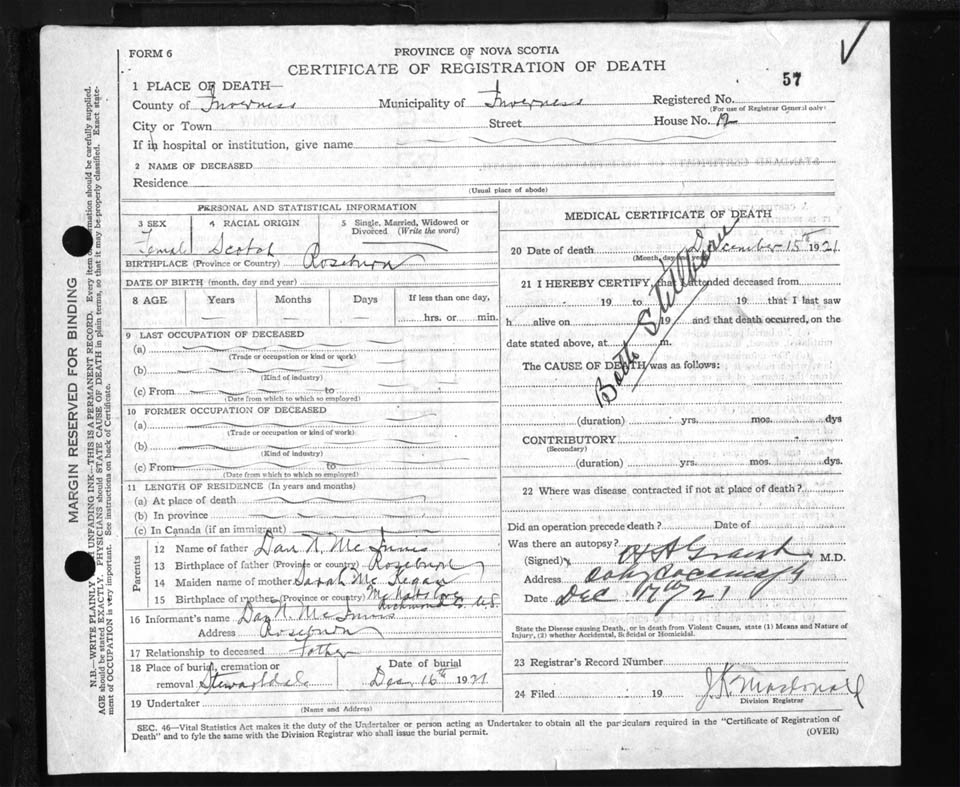 FORM 6
PROVINCE OF NOVA SCOTIA
CERTIFICATE OF REGISTRATION OF DEATH
57
1 PLACE OF DEATH—
County of Inverness Municipality of Inverness Registered No.
(For use of Registrar General only)
City or Town Street House No. 12
If in hospital or institution, give name
2 NAME OF DECEASED
Residence
(Usual place of abode)
PERSONAL AND STATISTICAL INFORMATION
3 SEX 4 RACIAL ORIGIN 5 Single, Married, Widowed or Divorced (Write the word)
Female Scotch
BIRTHPLACE (Province or Country) Roseburn
DATE OF BIRTH (month, day and year)
8 AGE Years Months Days If less than one day,
hrs. or min.
9 LAST OCCUPATION OF DECEASED
(a)
(Trade or occupation or kind or work)
(b)
(Kind of industry)
(c) From to
(Date from which to which so employed)
10 FORMER OCCUPATION OF DECEASED
(a)
(Trade or occupation or kind of work)
(b)
(Kind of industry)
(c) From to
(Date from which to which so employed)
11 LENGTH OF RESIDENCE (In years and months)
(a) At place of death
(b) In province
(c) In Canada (if an immigrant)
Parents
12 Name of father Dan N. McInnis
13 Birthplace of father (Province or country) Roseburn
14 Maiden name of mother Sarah McKegan
15 Birthplace of mother (Province or country) Richmond Co. N.S.
16 Informant's name Dan N. McInnis
Address Roseburn
17 Relationship to deceased Father
18 Place of burial, cremation or removal Stewartdale
Date of burial Dec 16th 1921
19 Undertaker
(Name and Address)
MEDICAL CERTIFICATE OF DEATH
20 Date of death December 15th 1921
(Month, day and year)
21 I HEREBY CERTIFY, that I attended deceased from
19 to 19 that I last saw
h alive on 19 and that death occurred, on the
date stated above, at m.
The CAUSE OF DEATH was as follows:
Stillborn
(duration) yrs. mos. dys
CONTRIBUTORY
(Secondary)
(duration) yrs. mos. dys.
22 Where was disease contracted if not at place of death?
Did an operation precede death? Date of
Was there an autopsy?
(Signed) M.D.
Address
Date Dec 17th 21
State the Disease causing Death, or in death from Violent Causes, state (1) Means and Nature of
Injury, (2) whether Accidental, Suicidal or Homicidal.
23 Registrar's Record Number
24 Filed 19 Macdonald
Division Registrar
SEC. 46—Vital Statistics Act makes it the duty of the Undertaker or person acting as Undertaker to obtain all the particulars required in the "Certificate of Registration of
Death" and to fyle the same with the Division Registrar who shall issue the burial permit.
(OVER)
MARGIN RESERVED FOR BINDING
N.B.—WRITE PLAINLY UNFADING INK—THIS IS A PERMANENT RECORD. Every item of information should be carefully supplied.
AGE should be stated EXACTLY. PHYSICIANS should STATE CAUSE OF DEATH in plain terms, so that it may be properly classified. Exact state-
ment of OCCUPATION is very important. See instructions on back of Certificate.